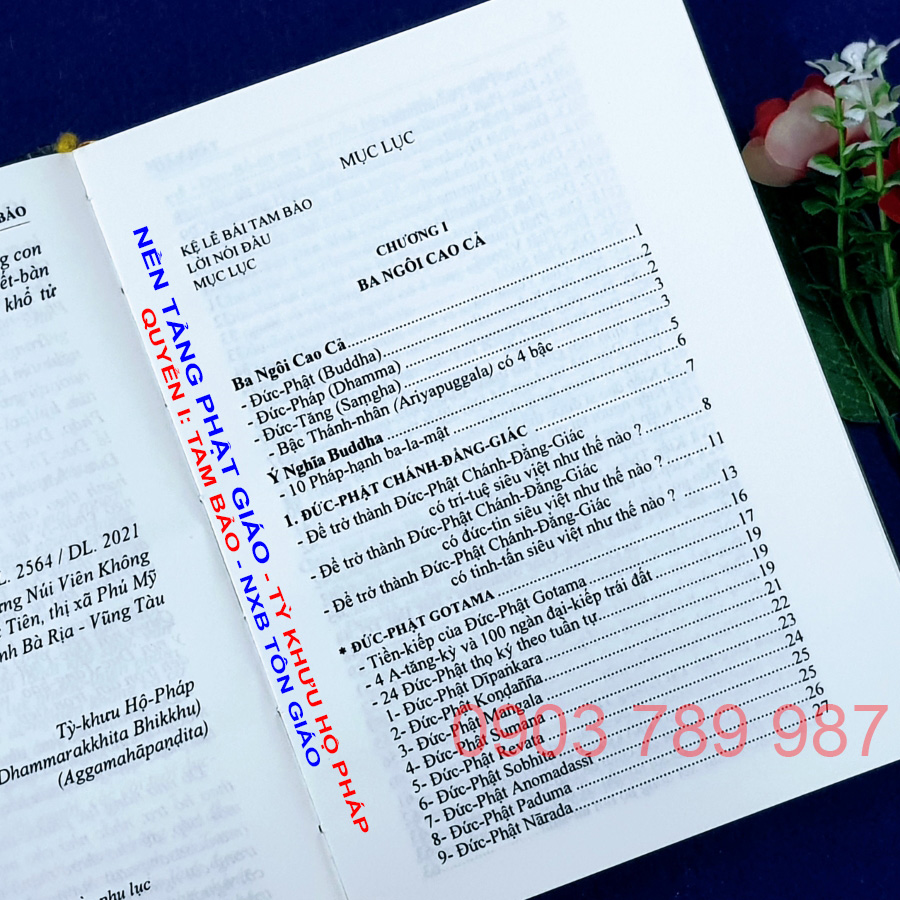 BẢO
g con
ết-bàn
khổ tử
L. 2564 / DL. 2021
ng Núi Viên Không
Tiên, thị xã Phú Mỹ
nh Bà Rịa - Vũng Tàu
Tỳ-khưu Hộ-Pháp
Dhammarakkhita Bhikkhu)
(Aggamahāpaṇḍita)
phụ lục
NỀN TẢNG PHẬT GIÁO - TỲ KHƯU HỘ PHÁP
QUYỂN I: TAM BẢO - NXB TÔN GIÁO
MỤC LỤC
KỆ LỄ BÁI TAM BẢO
LỜI NÓI ĐẦU
MỤC LỤC
CHƯƠNG I
BA NGÔI CAO CẢ
Ba Ngôi Cao Cả ........ 1
- Đức-Phật (Buddha) ........ 2
- Đức-Pháp (Dhamma) ........ 2
- Đức-Tăng (Saṃgha) ........ 3
- Bậc Thánh-nhân (Ariyapuggala) có 4 bậc ........ 3
Ý Nghĩa Buddha ........ 5
- 10 Pháp-hạnh ba-la-mật ........ 6
1. ĐỨC-PHẬT CHÁNH-ĐẲNG-GIÁC ........ 7
- Để trở thành Đức-Phật Chánh-Đẳng-Giác
có trí-tuệ siêu việt như thế nào ? ........ 8
- Để trở thành Đức-Phật Chánh-Đẳng-Giác
có đức-tin siêu việt như thế nào ? ........ 11
- Để trở thành Đức-Phật Chánh-Đẳng-Giác
có tinh-tấn siêu việt như thế nào ? ........ 13
* ĐỨC-PHẬT GOTAMA ........ 16
- Tiền-kiếp của Đức-Phật Gotama ........ 17
- 4 A-tăng-kỳ và 100 ngàn đại-kiếp trái đất ........ 19
- 24 Đức-Phật thọ ký theo tuần tự ........ 19
1- Đức-Phật Dīpaṅkara ........ 19
2- Đức-Phật Koṇḍañña ........ 21
3- Đức-Phật Maṅgala ........ 22
4- Đức-Phật Sumana ........ 23
5- Đức-Phật Revata ........ 24
6- Đức-Phật Sobhita ........ 25
7- Đức-Phật Anomadassī ........ 25
8- Đức-Phật Paduma ........ 26
9- Đức-Phật Nārada ........ 27
0903 789 987